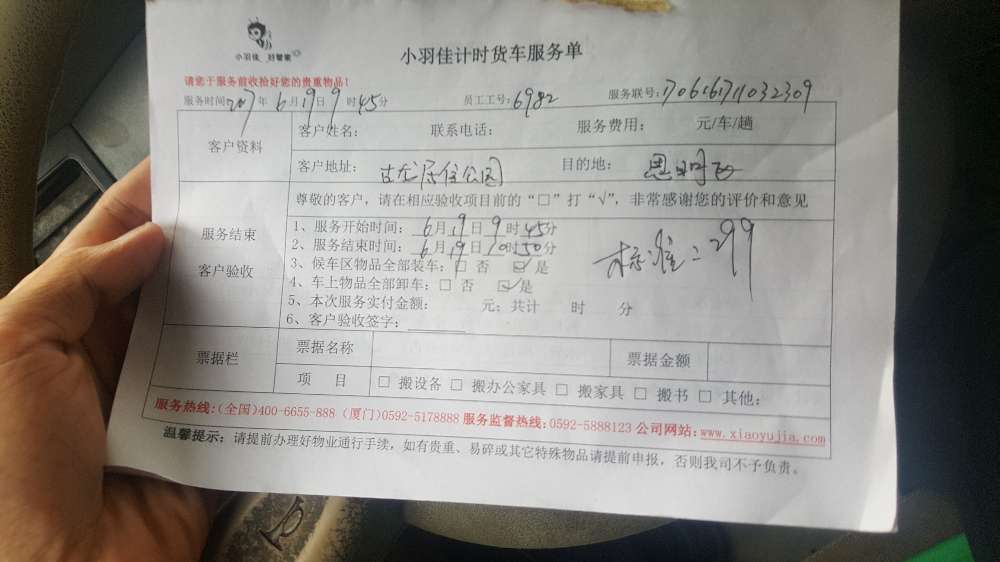 小羽佳 好管家
小羽佳计时货车服务单
请您于服务前收拾好您的贵重物品!
服务时间2017年6月19日9时45分 员工工号:6982 服务联号:
客户资料
客户姓名: 联系电话: 服务费用: 元/车/趟
客户地址: 古龙居住公园 目的地: 思明区
服务结束
客户验收
尊敬的客户,请在相应验收项目前的“□”打“√”,非常感谢您的评价和意见
1、服务开始时间:6月19日9时45分
2、服务结束时间:6月19日10时50分
3、候车区物品全部装车:□ 否 ☑ 是
4、车上物品全部卸车:□ 否 ☑ 是
5、本次服务实付金额: 元;共计 时 分
6、客户验收签字:
标准:299
票据栏
票据名称 票据金额
项 目 □ 搬设备 □ 搬办公家具 □ 搬家具 □ 搬书 □ 其他:
服务热线:(全国)400-6655-888 (厦门)0592-5178888 服务监督热线:0592-5888123 公司网站:www.xiaoyujia.com
温馨提示:请提前办理好物业通行手续,如有贵重、易碎或其它特殊物品请提前申报,否则我司不予负责。